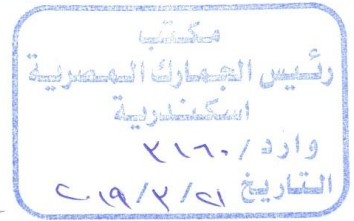 مكتب
رئيس الجمارك المصرية
اسكندرية
وارد / ٣١٦٠
التاريخ ٢١/٣/٢٠١٩